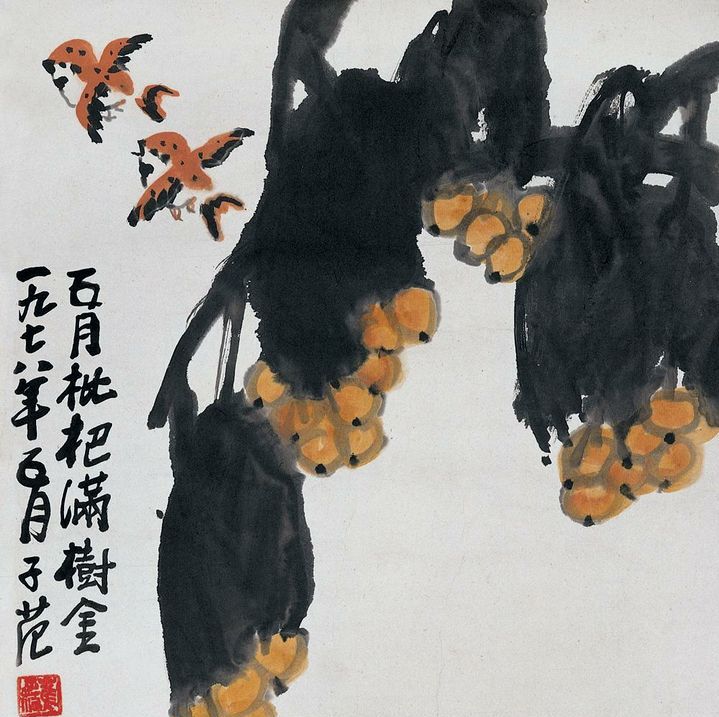 五月枇杷滿樹金
一九七八年五月子范